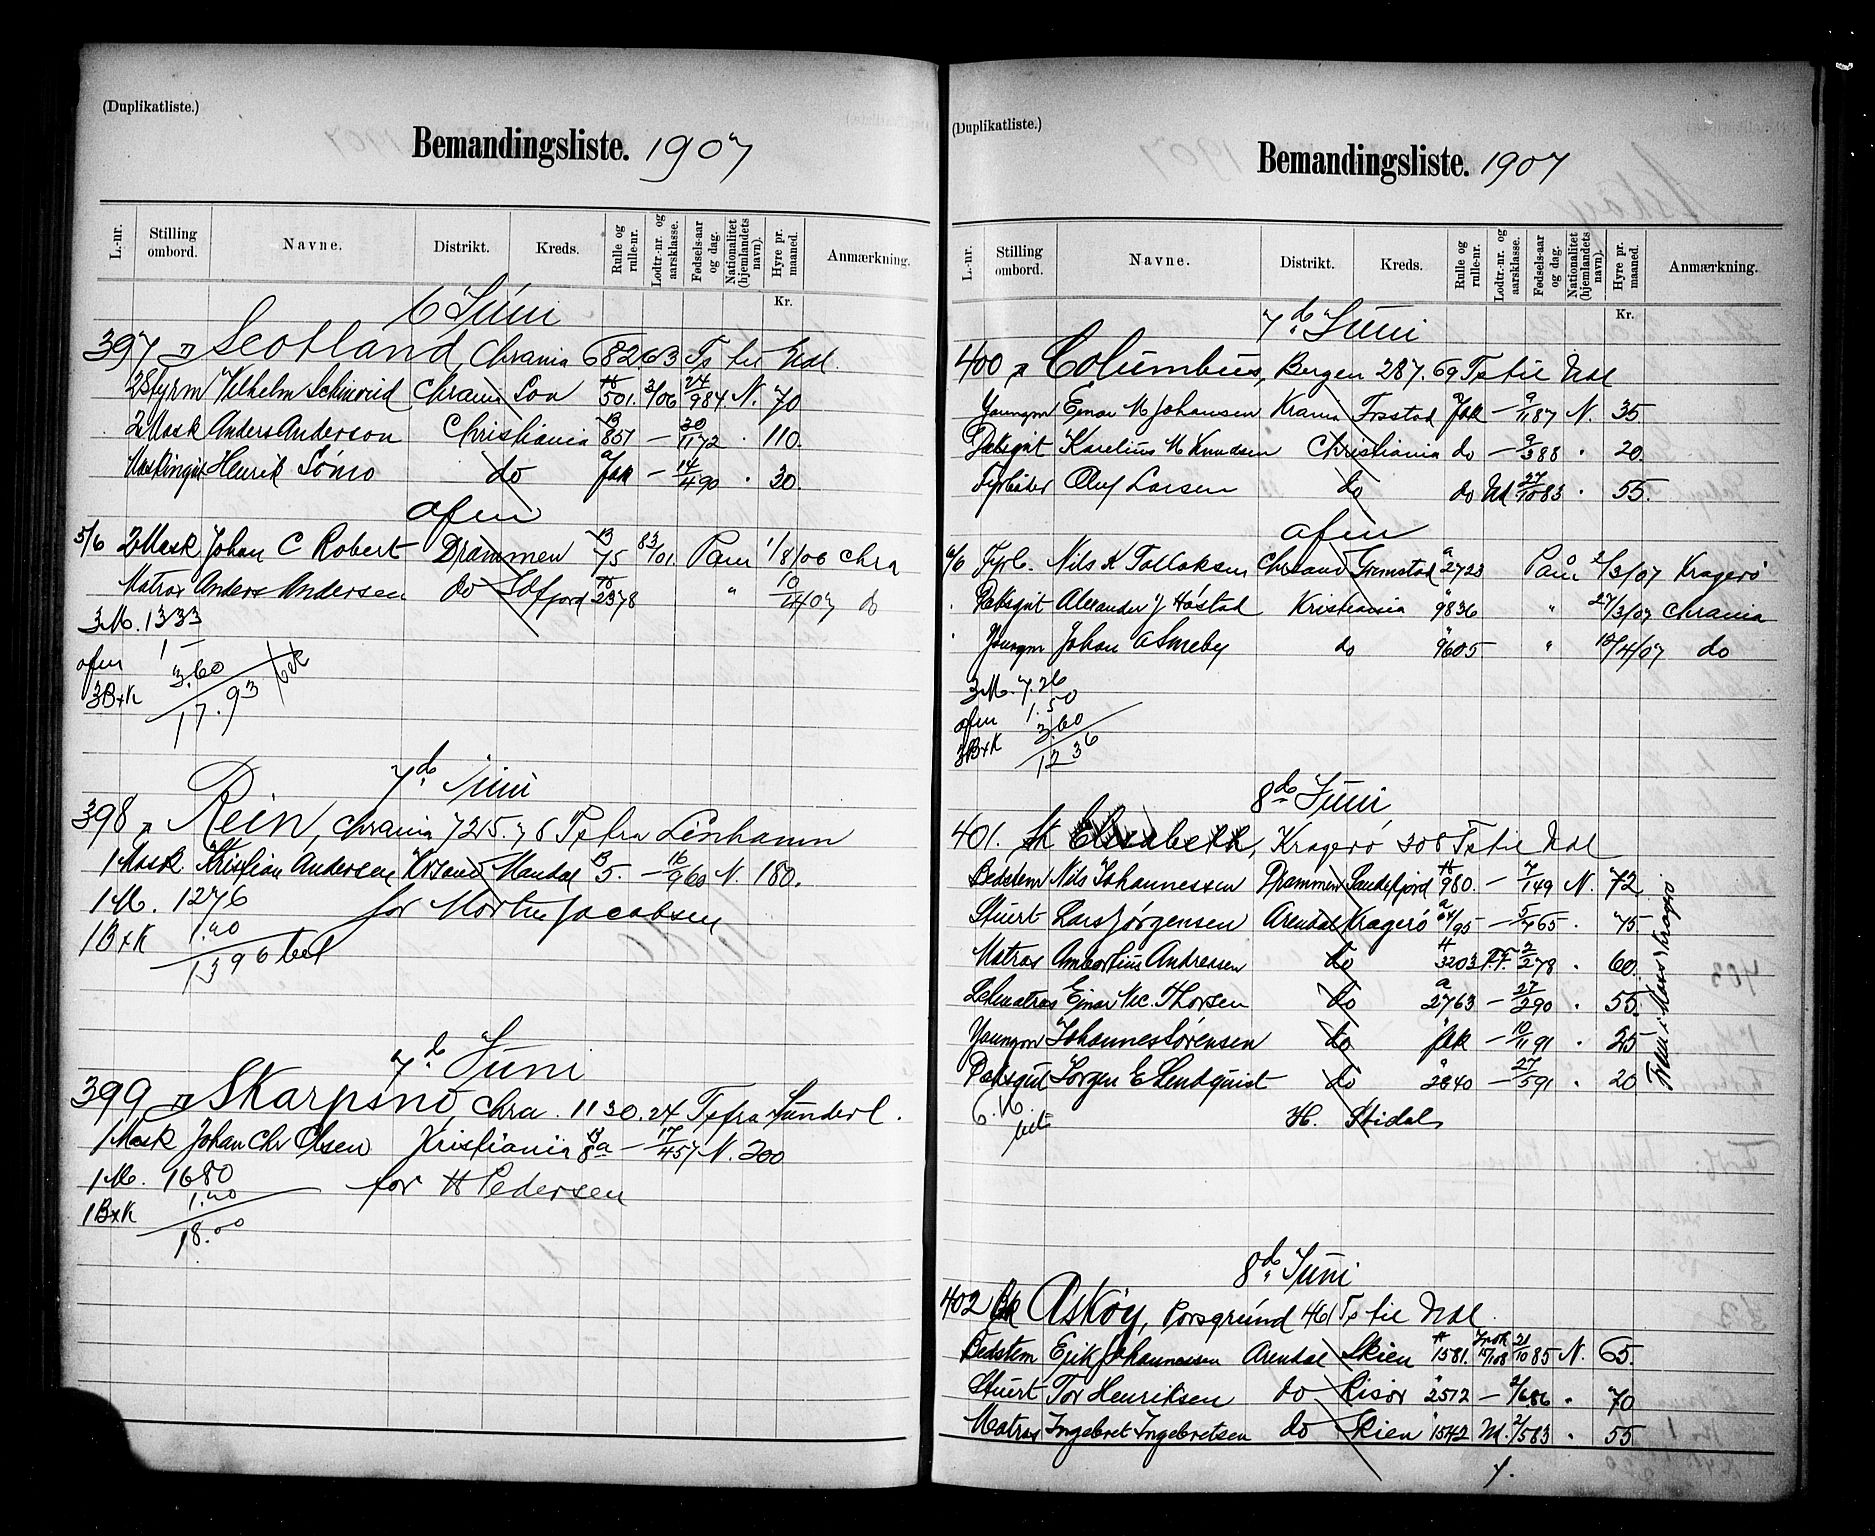 (Duplikatliste.)
Bemandingsliste. 1907
L.-nr. Stilling ombord. Navne. Distrikt. Kreds. Rulle og rulle-nr. Lodtr.-nr. og aarsklasse. Fødsels-aar og dag. Nationalitet (hjemlandets navn). Hyre pr. maaned. Anmærkning.
Kr.
6 Juni
397 Scotland Chrania 682,63 Ts til Udl.
2Styrm Vilhelm Chrania Son 501. 3/06 24/984 N. 70
2Mask Anders Anderson Christiania 857 — 30/1172 " 110.
Henrik do — 14/490 " 30.
afm
5/6 2Mask Johan C Robert Drammen 75 83/01. Paam 1/8/06 Chra
Matros Anders Andersen do 2378 " 10/4/07 do
3M. 13.33
afm 1 —
3B+K 3.60
17.93 bet
7de Juni
398 Rein, Chrania 7215.78 Ts fra Linhamn
1Mask Kristian Andersen Krsand Mandal 5. — 16/960 N. 180.
1M. 1276 for Morten Jacobsen
1B+K 1.20
1396 bet
7de Juni
399 Skarpsno, Chra. 1130.24 Ts fra Sunderl.
1Mask Johan Chr Olsen Kristiania 8a — 17/457 N. 200
1M. 1680 for H Pedersen
1B+K 1.20
18.00
(Duplikatliste.)
Bemandingsliste. 1907
L.-nr. Stilling ombord. Navne. Distrikt. Kreds. Rulle og rulle-nr. Lodtr.-nr. og aarsklasse. Fødsels-aar og dag. Nationalitet (hjemlandets navn). Hyre pr. maaned. Anmærkning.
Kr.
7de Juni
400 Columbus, Bergen 287.69 Ts til Udl
Youngm Ejnar M Johansen Krania — 9/1187 N. 35.
Dæksgut Karelius M Knudsen Christiania do — 9/388 " 20.
Fyrbøder Oluf Larsen do do Ud 27/1083 " 55.
afm
6/6 Fyrb. Nils K Tallaksen Chrsand Grimstad 2723 Paam 2/3/07 Kragerø
" Dæksgut Alexander J Høstad Kristiania 9836 " 27/3/07 Chrania
" Youngm Johan A Smeby do 9605 " 18/4/07 do
3M. 7.26
afm 1.50
3B+K 3.60
12 36
8de Juni
401. Sk Elisabeth, Kragerø 308 Ts til Udl
Bedstem Nils Johannessen Drammen Sandefjord 980. — 7/149 N. 72
Stuert Lars Jørgensen Arendal Kragerø 64/95 — 5/765 " 75
Matros Andreasen do 3203 F.F. 2/278 " 60.
Letmatros Ejnar Thorsen do 2763 — 27/290 " 55.
Youngm Johannes Sørensen do — 10/1191 " 25
Dæksgut Jørgen E Lendquist do 2840 — 27/591 " 20
6.16 bet
H. Stidal
8de Juni
402 Bk Askøy, Porsgrund 461 Ts til Udl.
Bedstem Erik Johannesen Arendal Skien 1581. 15/108 21/1085 N. 65.
Stuert Tor Henriksen do Risør 2512 — 2/686 " 70
Matros Ingebret Ingebretsen do Skien 1542 Ud. 2/583 " 55